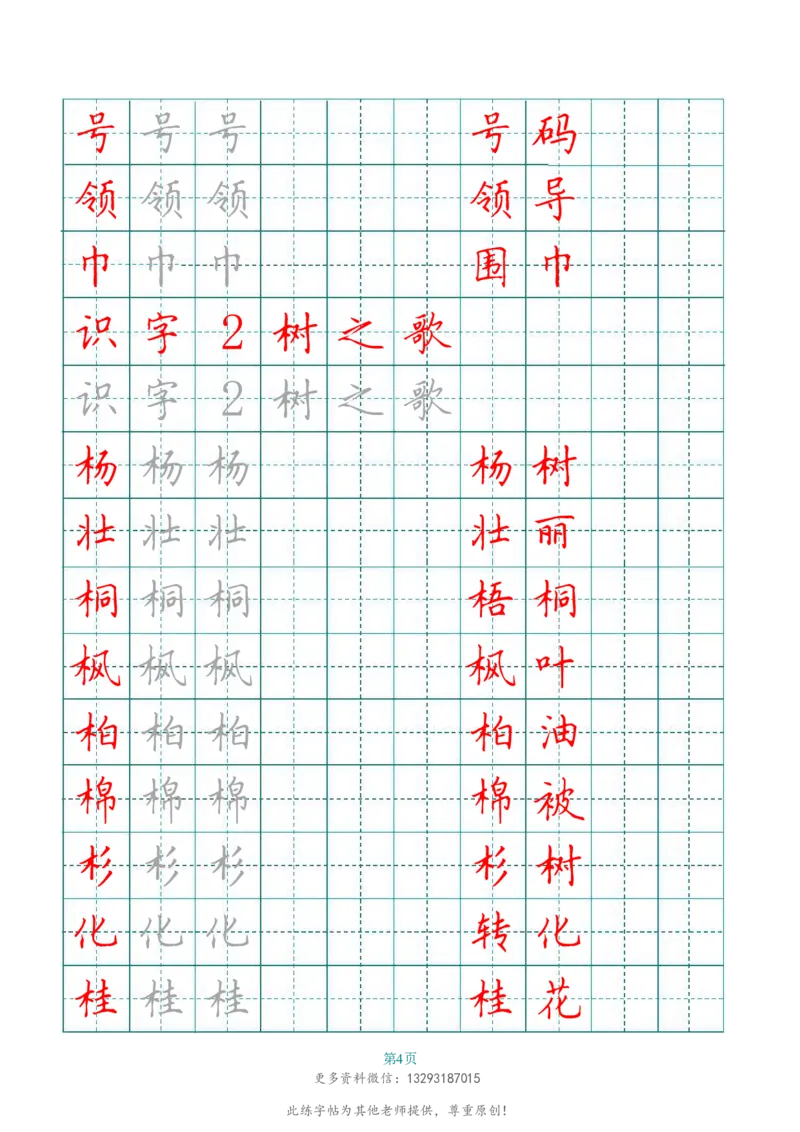 号 号 号 号 码
领 领 领 领 导
巾 巾 巾 围 巾
识 字 2 树 之 歌
识 字 2 树 之 歌
杨 杨 杨 杨 树
壮 壮 壮 壮 丽
桐 桐 桐 梧 桐
枫 枫 枫 枫 叶
柏 柏 柏 柏 油
棉 棉 棉 棉 被
杉 杉 杉 杉 树
化 化 化 转 化
桂 桂 桂 桂 花
第4页
更多资料微信：13293187015
此练字帖为其他老师提供，尊重原创！